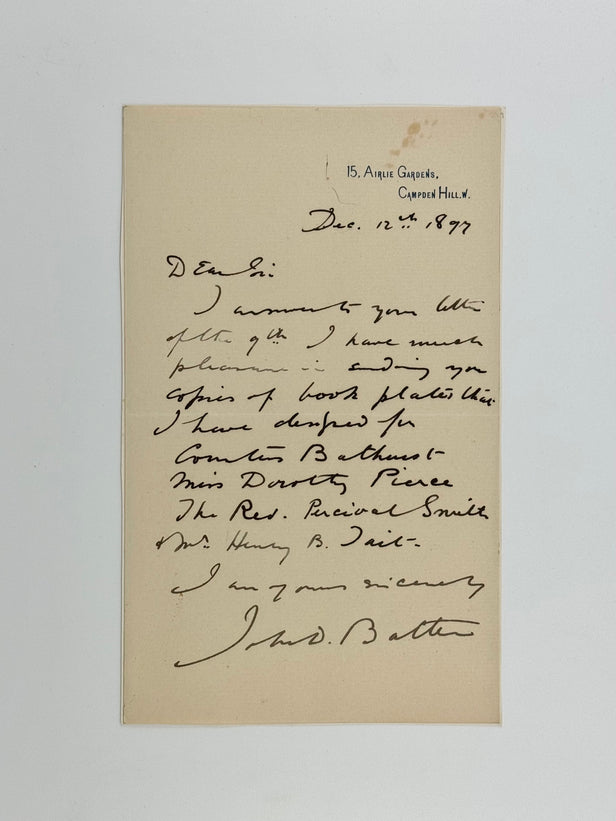 15, AIRLIE GARDENS,
CAMPDEN HILL. W.
Dec. 12th 1897
Dear Sir.
I answer to your letter
of the 9th. I have much
pleasure in sending you
copies of book plates that
I have designed for
Countess Bathurst
Miss Dorothy Pierce
The Rev. Percival Smith
& Mr. Henry B. Tait.
I am yours sincerely
John D. Batten